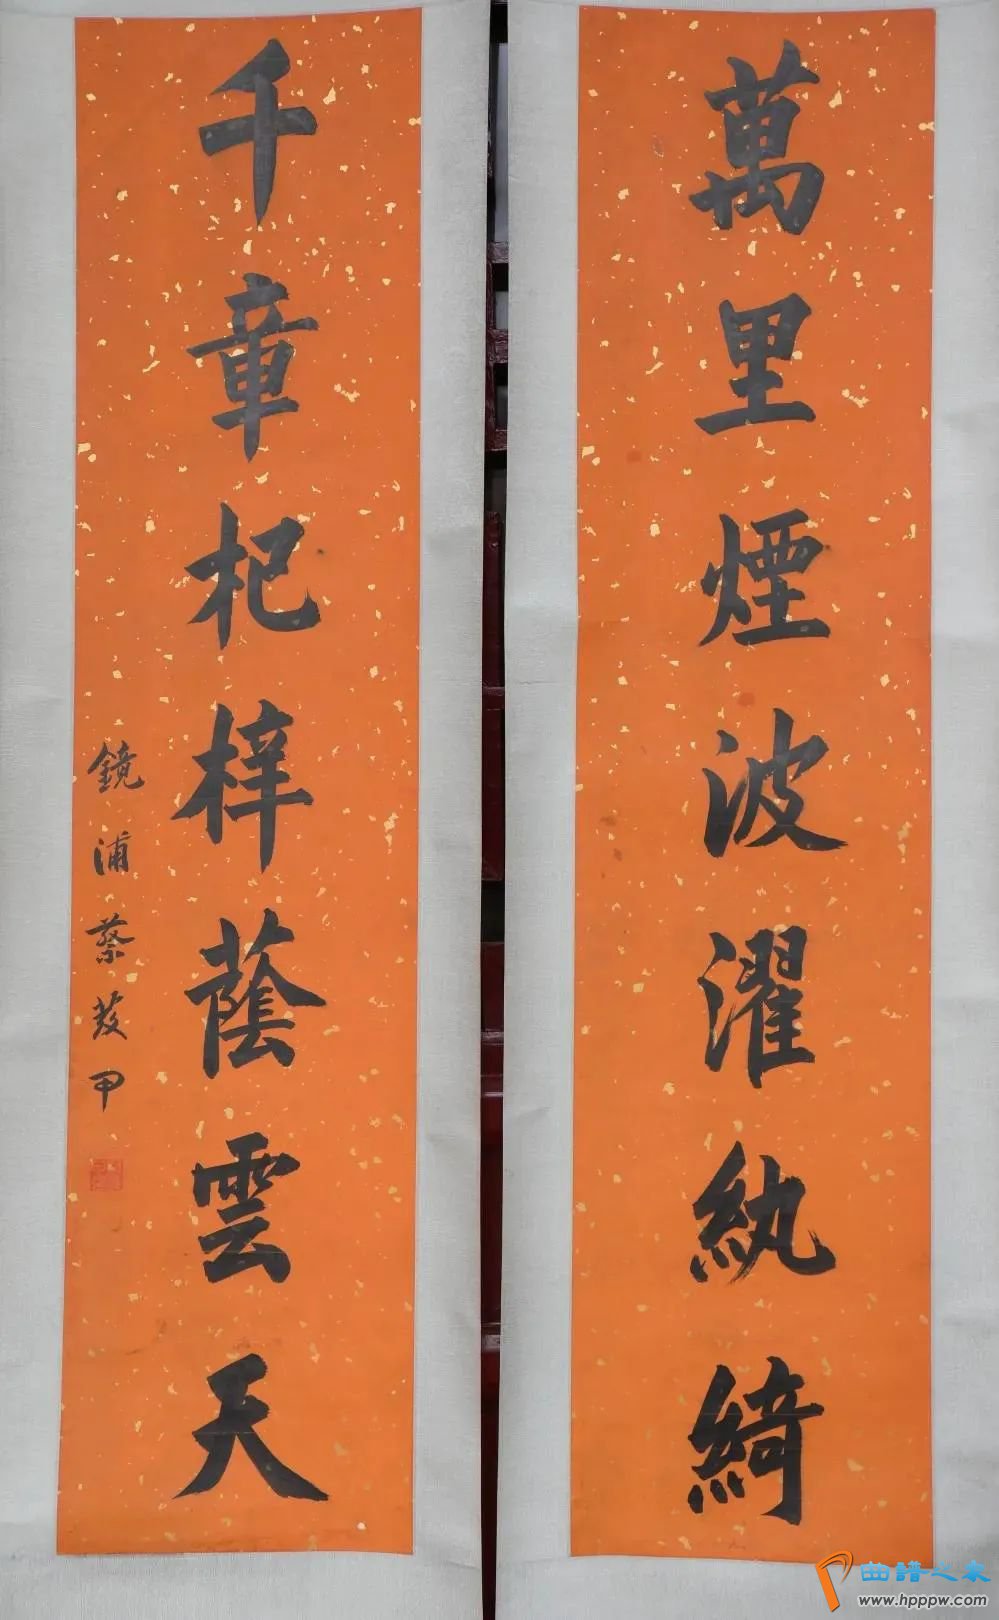 萬里煙波濯紈綺
千章杞梓蔭雲天
鏡浦蔡茇甲
曲譜之家
www.hpppw.com